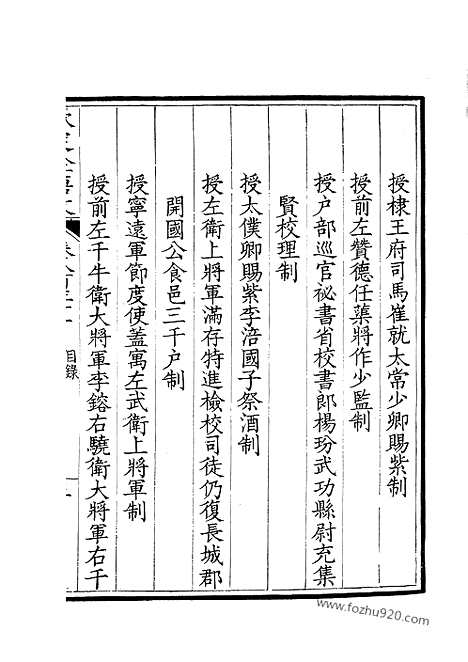 授棣王府司馬崔就太常少卿賜紫制
授前左贊德任蘂將作少監制
授户部巡官祕書省校書郎楊玢武功縣尉充集
賢校理制
授太僕卿賜紫李涪國子祭酒制
授左衛上將軍滿存特進檢校司徒仍復長城郡
開國公食邑三千户制
授寧遠軍節度使蓋寓左武衛上將軍制
授前左千牛衛大將軍李鎔右驍衛大將軍右千
目錄
www.fozhu920.com